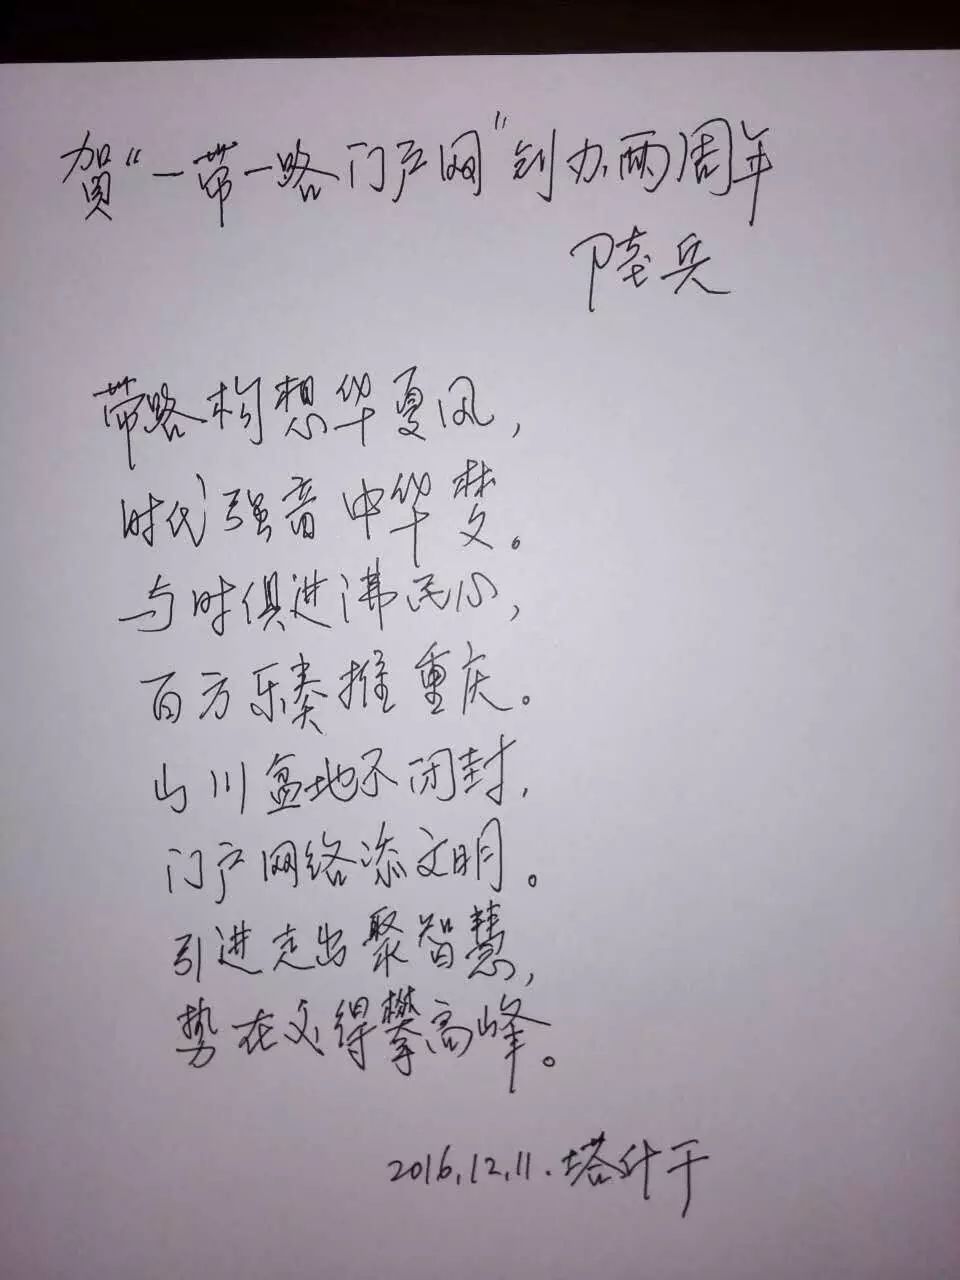 贺“一带一路门户网”创办两周年
陆兵
带路构想华夏风，
时代强音中华梦。
与时俱进沸民心，
百方乐奏推重庆。
山川盆地不闭封，
门户网络添文明。
引进走出聚智慧，
势在必得攀高峰。
2016.12.11.塔什干